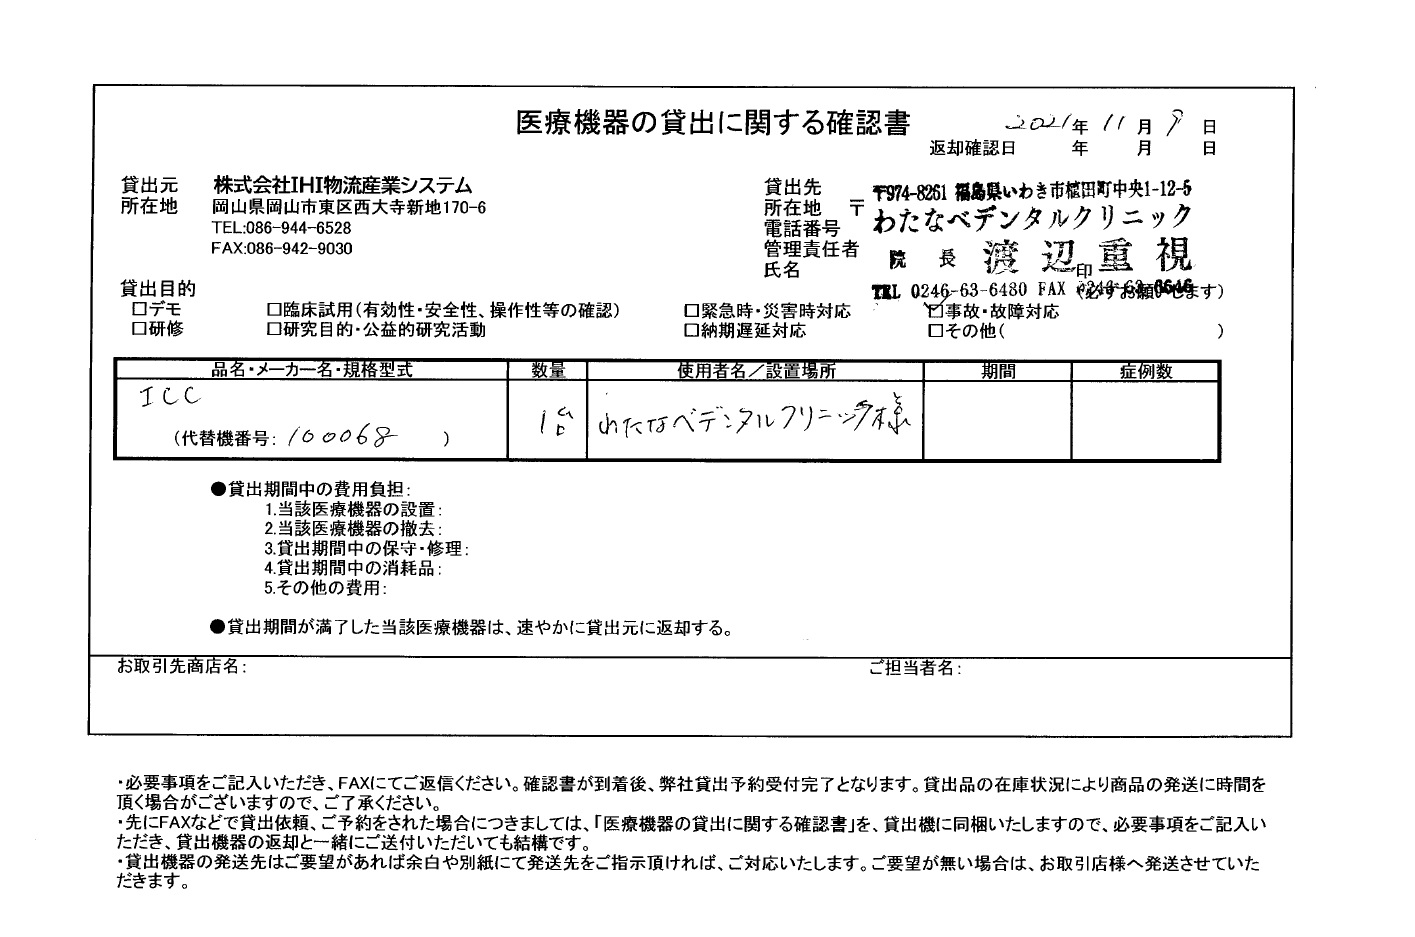 医療機器の貸出に関する確認書
2021年 11月 9日
返却確認日 年 月 日
貸出元 株式会社IHI物流産業システム
所在地 岡山県岡山市東区西大寺新地170-6
TEL:086-944-6528
FAX:086-942-9030
貸出先
所在地 〒
電話番号
管理責任者
氏名 印
(必ずお願いします)
〒974-8261 福島県いわき市植田町中央1-12-5
わたなべデンタルクリニック
院長 渡辺重視
TEL 0246-63-6480 FAX 0246-63-6646
貸出目的
□デモ □臨床試用(有効性・安全性、操作性等の確認) □緊急時・災害時対応 ☑事故・故障対応
□研修 □研究目的・公益的研究活動 □納期遅延対応 □その他( )
品名・メーカー名・規格型式 数量 使用者名/設置場所 期間 症例数
ICC
(代替機番号: 100068 ) 1台 わたなべデンタルクリニック様
●貸出期間中の費用負担:
1.当該医療機器の設置:
2.当該医療機器の撤去:
3.貸出期間中の保守・修理:
4.貸出期間中の消耗品:
5.その他の費用:
●貸出期間が満了した当該医療機器は、速やかに貸出元に返却する。
お取引先商店名: ご担当者名:
・必要事項をご記入いただき、FAXにてご返信ください。確認書が到着後、弊社貸出予約受付完了となります。貸出品の在庫状況により商品の発送に時間を
頂く場合がございますので、ご了承ください。
・先にFAXなどで貸出依頼、ご予約をされた場合につきましては、「医療機器の貸出に関する確認書」を、貸出機に同梱いたしますので、必要事項をご記入い
ただき、貸出機器の返却と一緒にご送付いただいても結構です。
・貸出機器の発送先はご要望があれば余白や別紙にて発送先をご指示頂ければ、ご対応いたします。ご要望が無い場合は、お取引店様へ発送させていた
だきます。